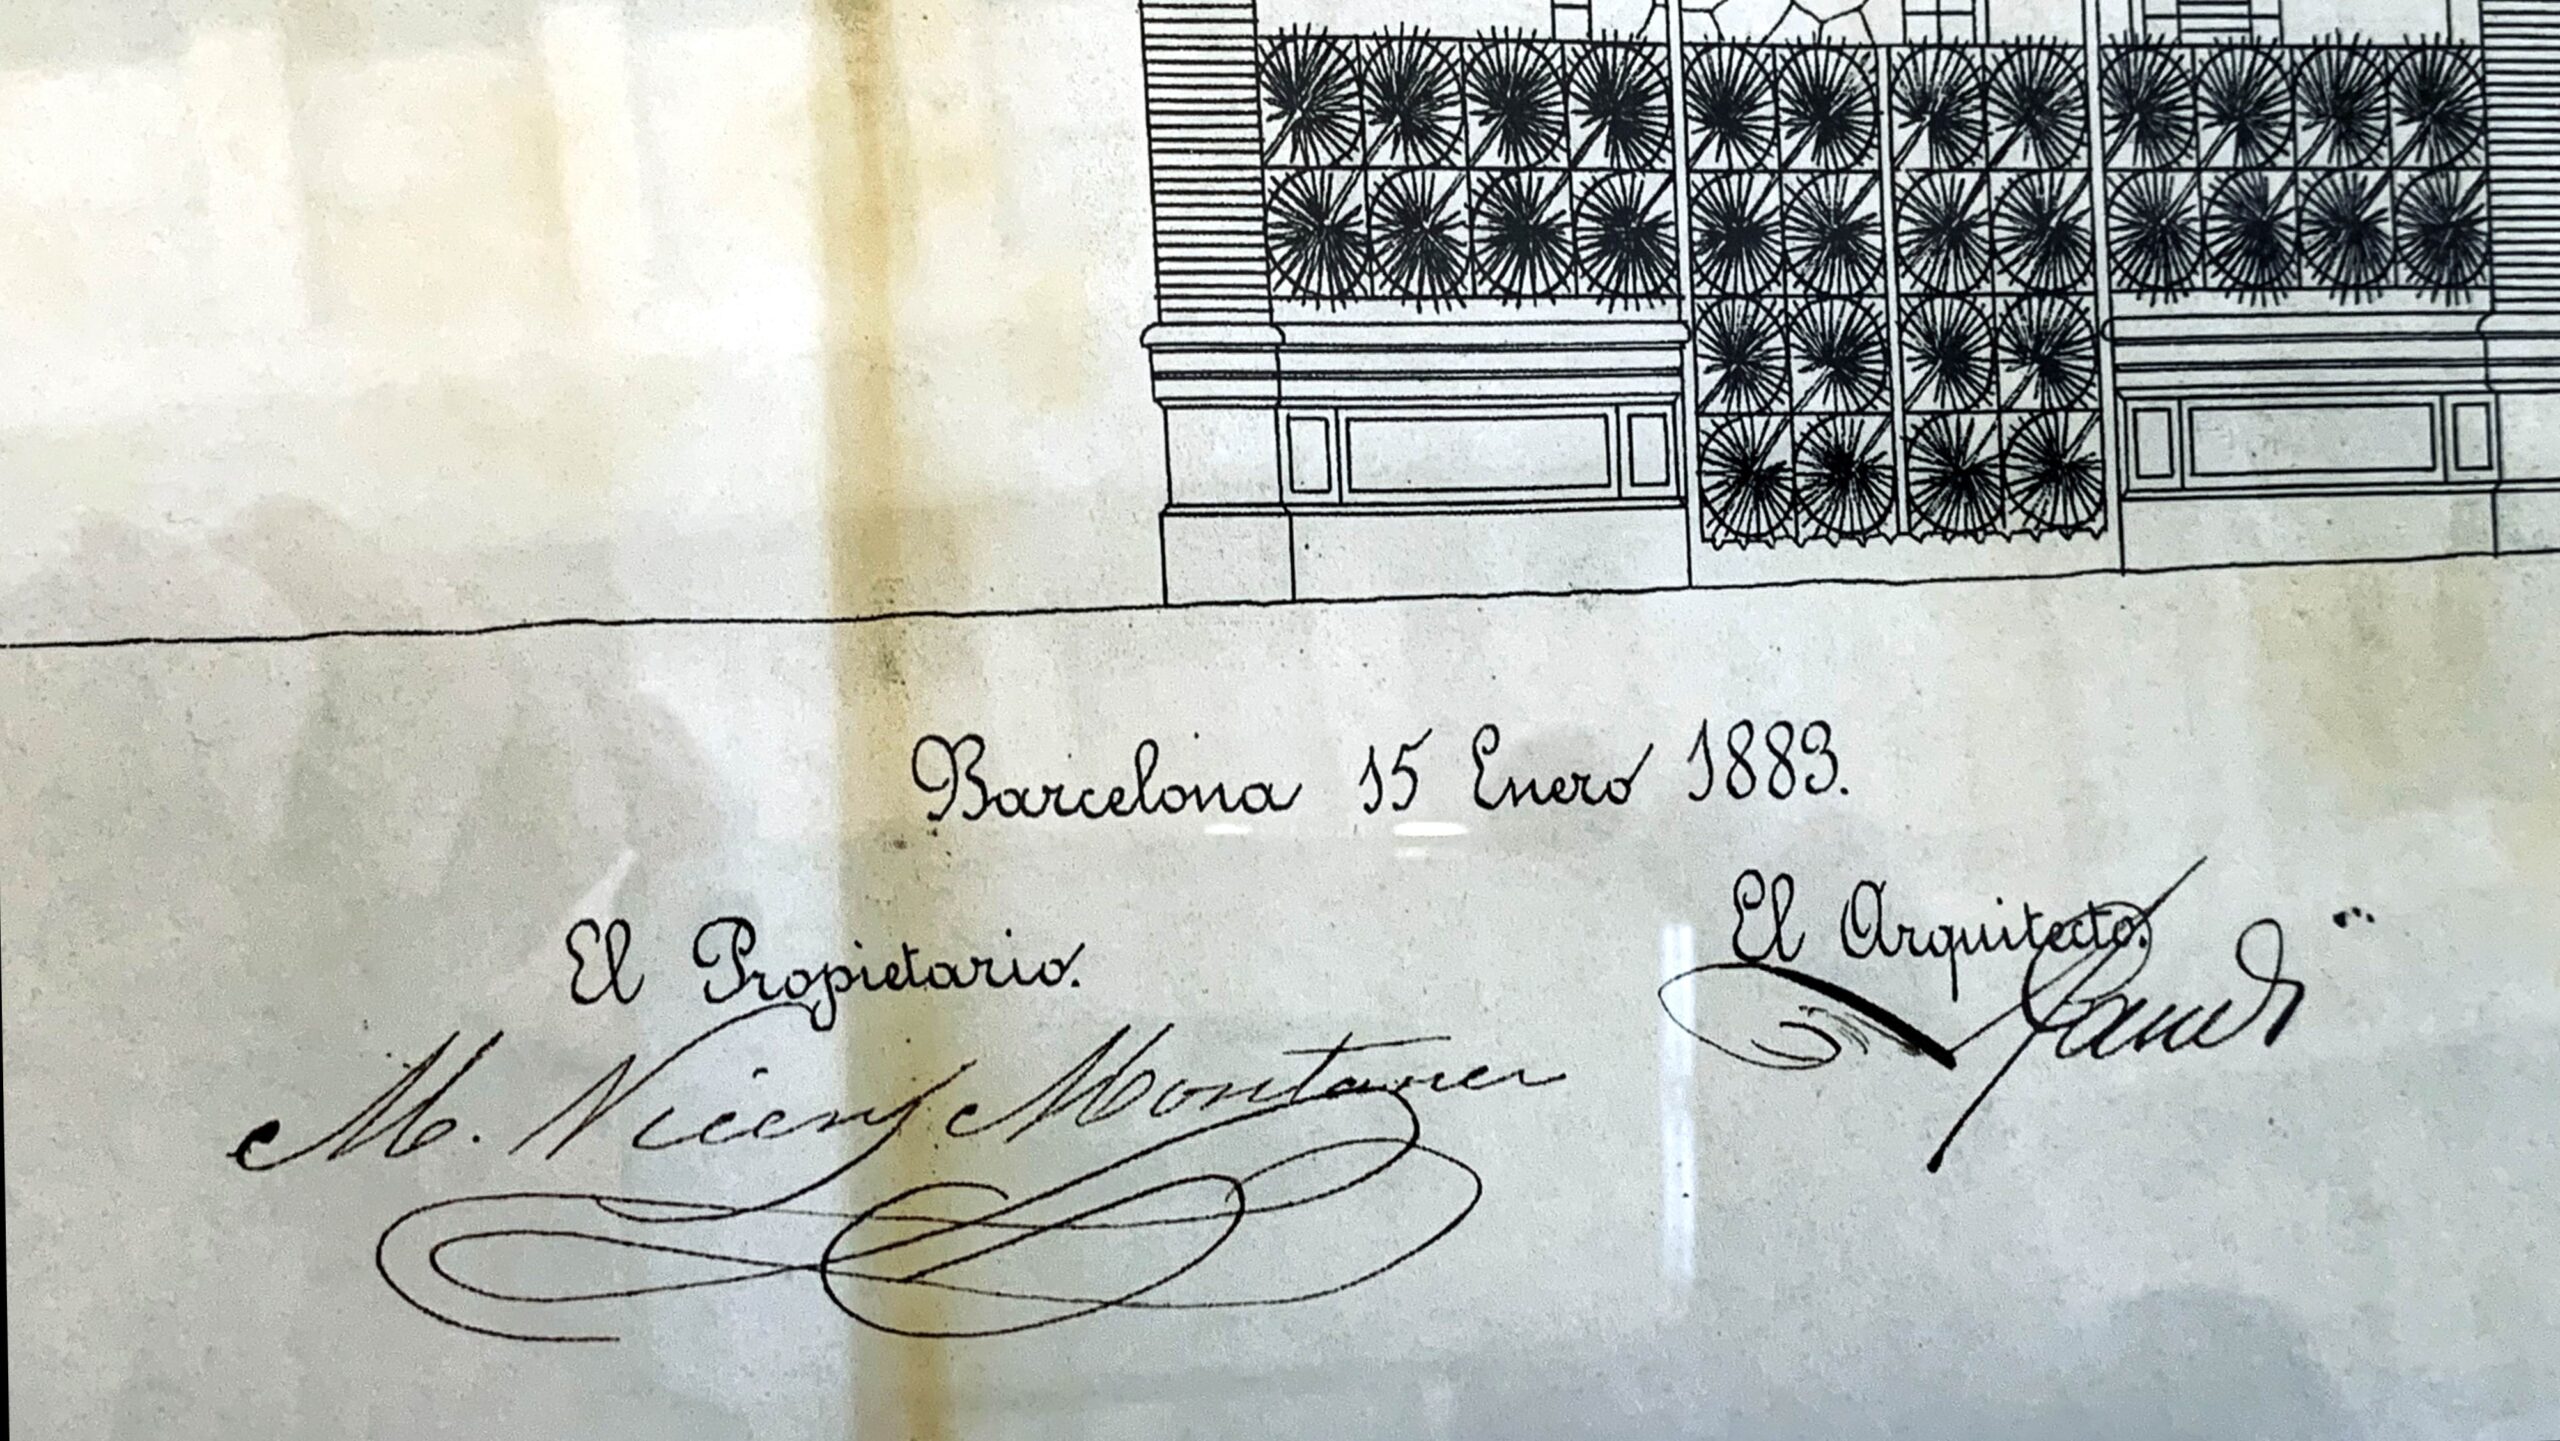 Barcelona 15 Enero 1883.
El Propietario.
M. Vicens Montaner
El Arquitecto.
Gaudí